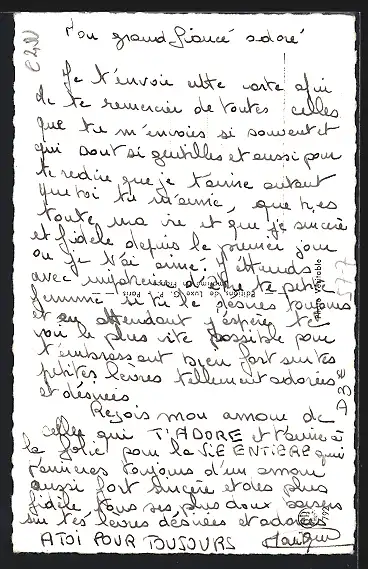 Mon grand fiancé adoré
Je t'envoie cette carte afin
de te remercier de toutes celles
que tu m'envoies si souvent et
qui sont si gentilles et aussi pour
te redire que je t'aime autant
que toi tu m'aime, que tu es
toute ma vie et que je suis sincère
et fidèle depuis le premier jour
ou je t'ai aimé. J'attends
avec impatience d'être ta petite
femme si tu le désires toujours
et en attendant j'espère te
voir le plus vite possible pour
t'embrassant bien fort sur tes
petites lèvres tellement adorées
et désirées.
Reçois mon amour de
celle qui T'ADORE et t'aime à
la folie pour la ViE ENTIÈRE qui
t'aimeras toujours d'un amour
aussi fort sincère et des plus
fidèle tous ses plus doux baisers
sur tes lèvres désirées et adorées
A TOI POUR TOUJOURS
Editions de Luxe, G. P. I. Paris
Photo véritable
D38